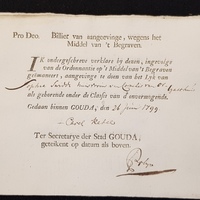 Pro Deo. Billiet van aangeevinge, wegens het
Middel van 't Begraven.
IK ondergeschreve verklare by dezen, ingevolge
van de Ordonnantie op 't Middel van 't Begraven
geëmaneert, aangeevinge te doen van het Lyk van
als gehoorende onder de Classe van d'onvermogende.
Gedaan binnen GOUDA, den 26 1799
Ter Secretarye der Stad GOUDA,
getekent op datum als boven.